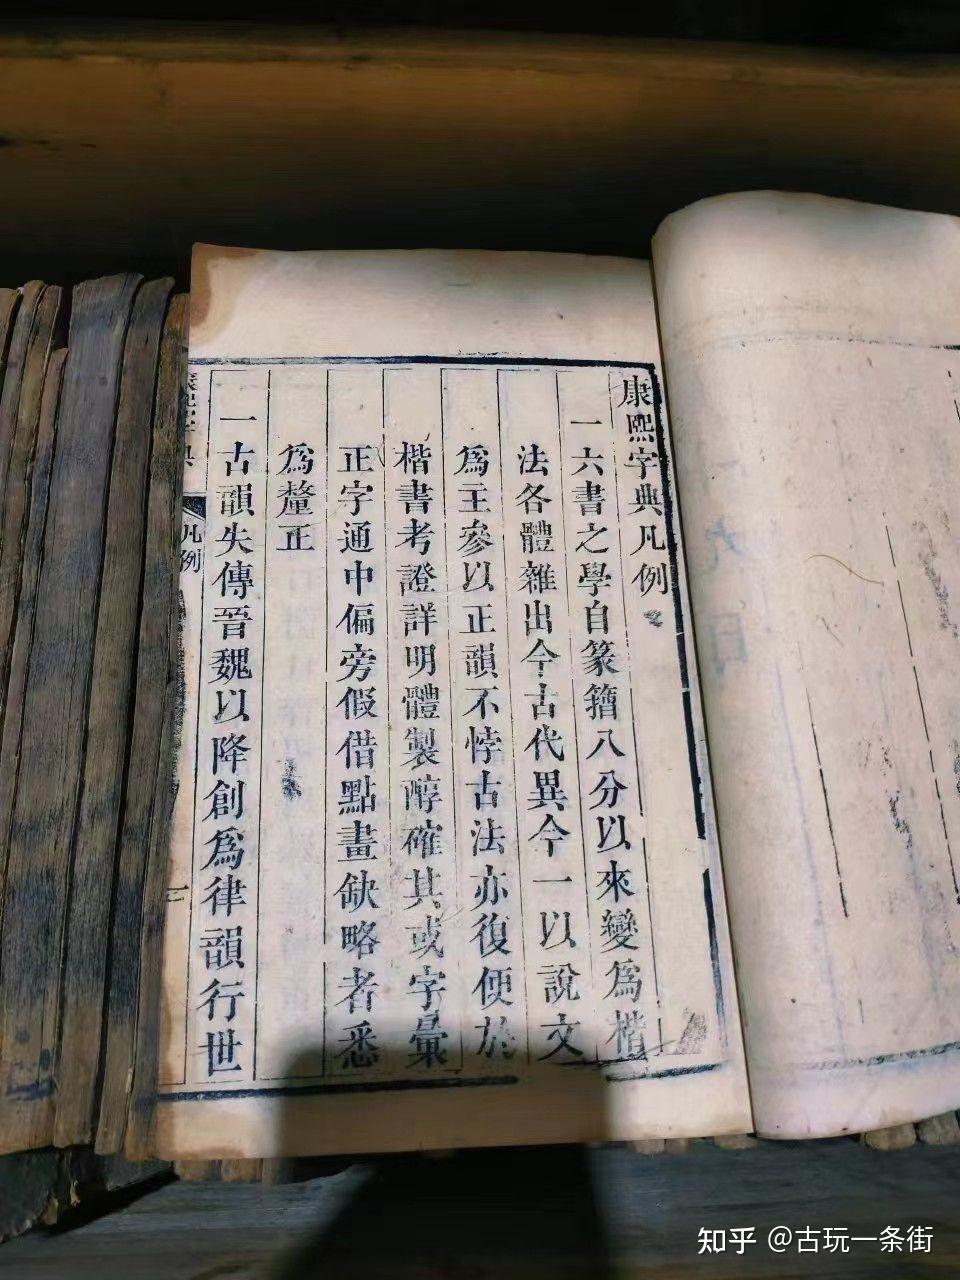 康熙字典凡例
一六書之學自篆籒八分以來變爲楷
法各體雜出今古代異今一以說文
爲主參以正韻不悖古法亦復便於
楷書考證詳明體製醇確其或字彙
正字通中偏旁假借點畫缺略者悉
爲釐正
一古韻失傳晉魏以降創爲律韻行世
康熙字典
凡例
一
知乎 @古玩一条街